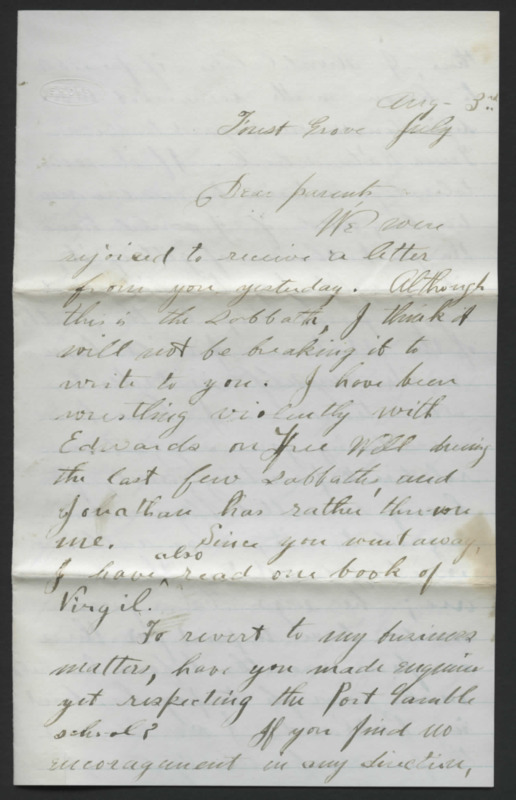 Aug- 3rd
Forest Grove July
Dear parents
We were
rejoiced to receive a letter
from you yesterday. Although
this is the Sabbath, I think I
will not be breaking it to
write to you. I have been
wrestling violently with
Edwards on Free Will during
the last few Sabbaths, and
Jonathan has rather thrown
me. Since you went away,
I have also read one book of
Virgil.
To revert to my business
matters, have you made enquiries
yet respecting the Port Gamble
school? If you find no
encouragement in any direction,